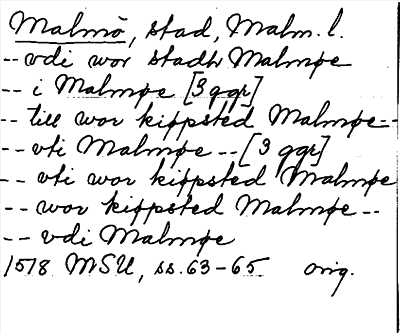 Malmö, stad, Malm. l.
-- vdi wor stadh Malmøe
-- i Malmøe [3 ggr]
-- till wor kippsted Malmøe --
-- vti Malmøe -- [3 ggr]
-- vti wor kippsted Malmøe
-- wor kippsted Malmøe --
-- vdi Malmøe
1578 MSU, ss. 63-65 orig.